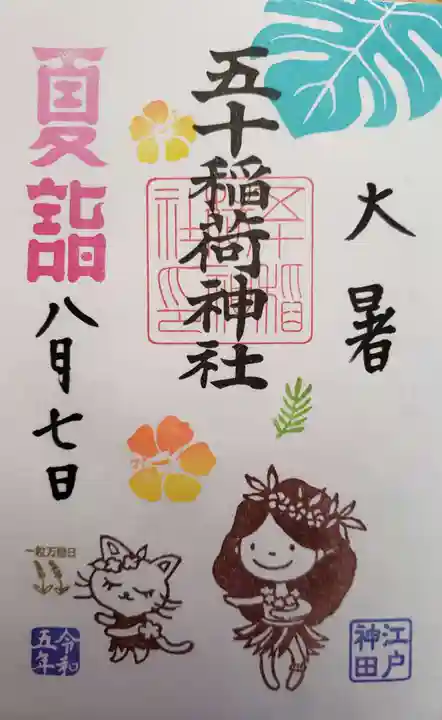 大暑
五十稲荷神社
夏詣
八月七日
一粒万倍日
令和
五年
江戸
神田